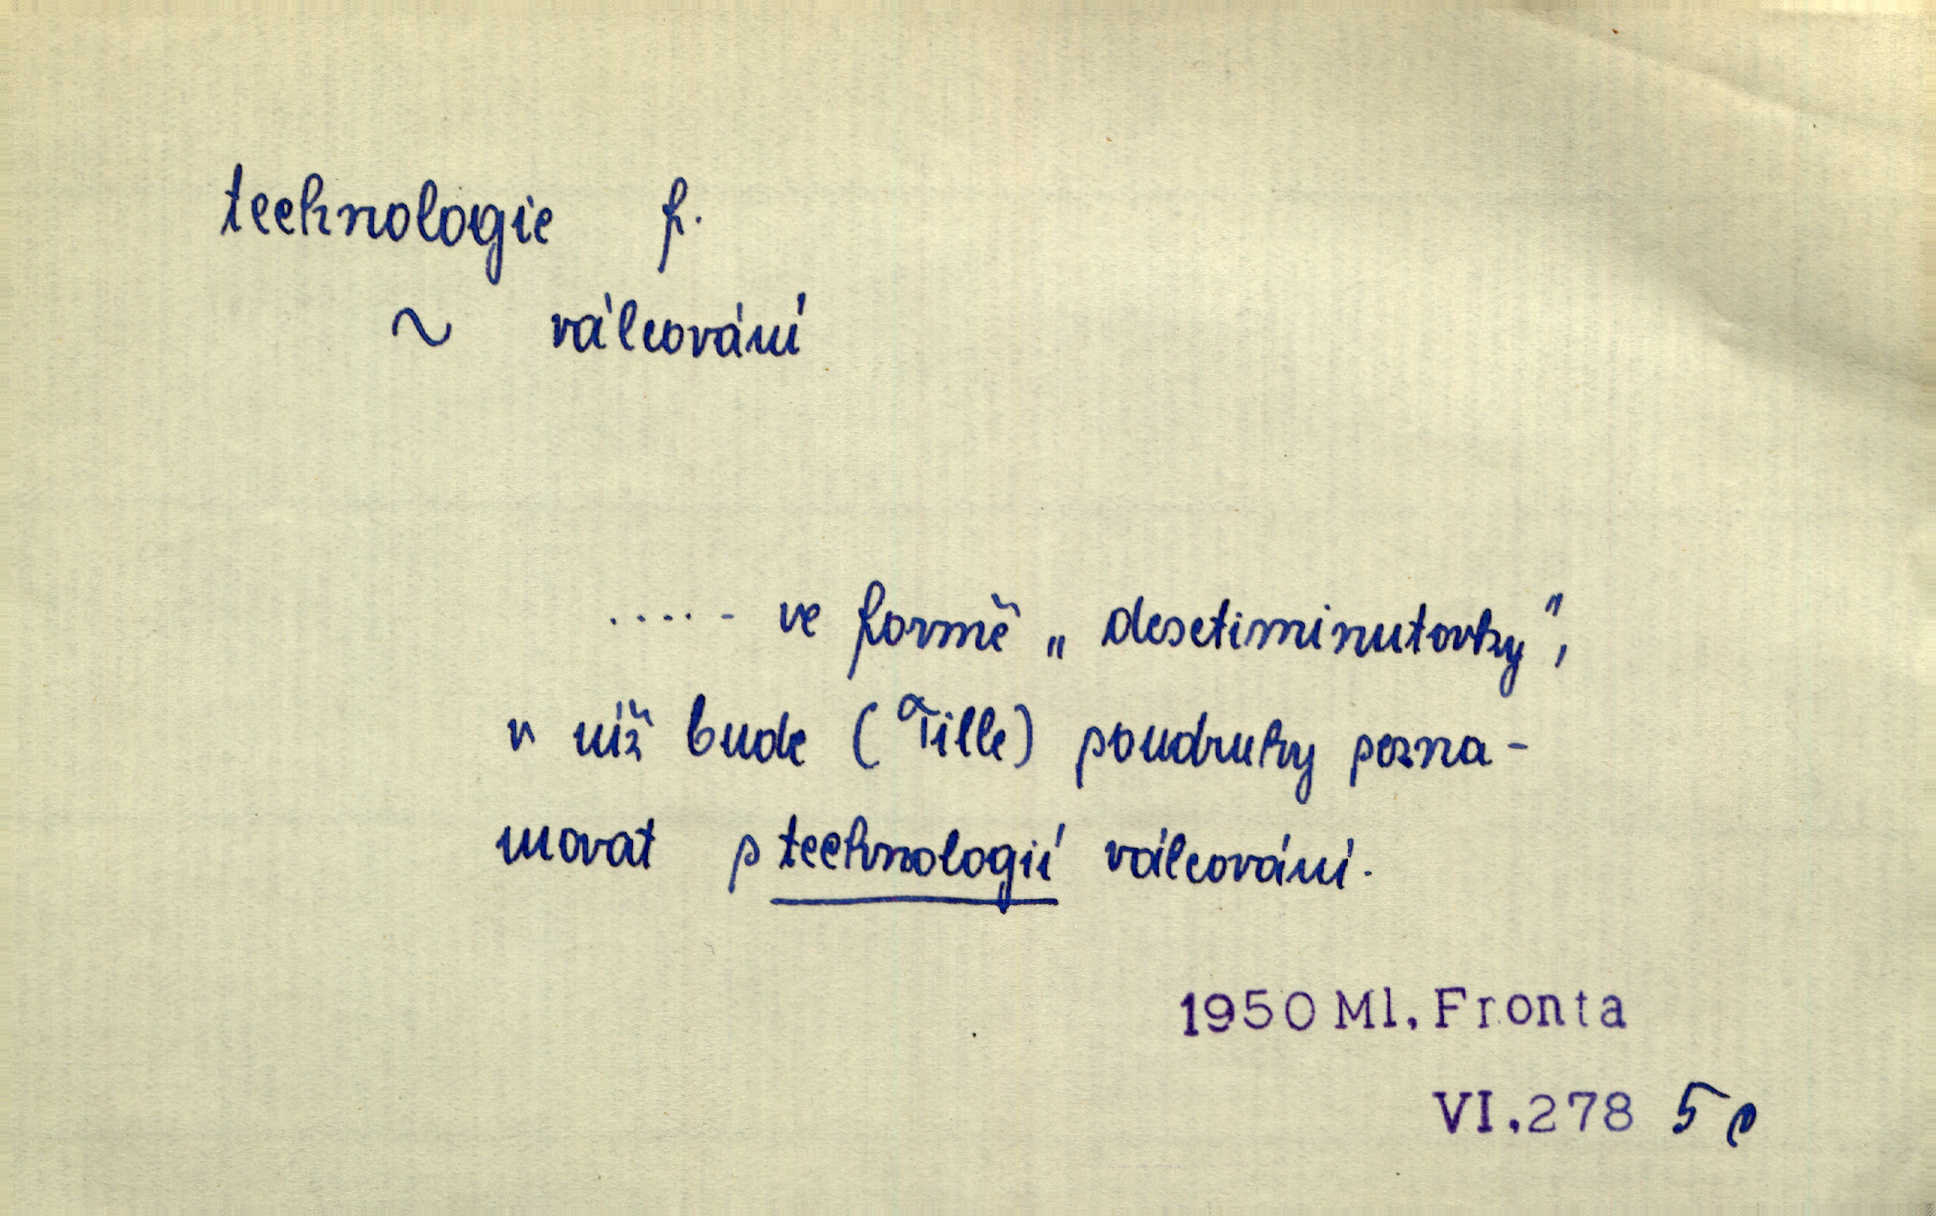 technologie f.
~ válcování
..... ve formě „desetiminutovky",
v níž bude (Tille) soudruhy sezna-
movat s technologií válcování.
1950 Ml. Fronta
VI.278 5